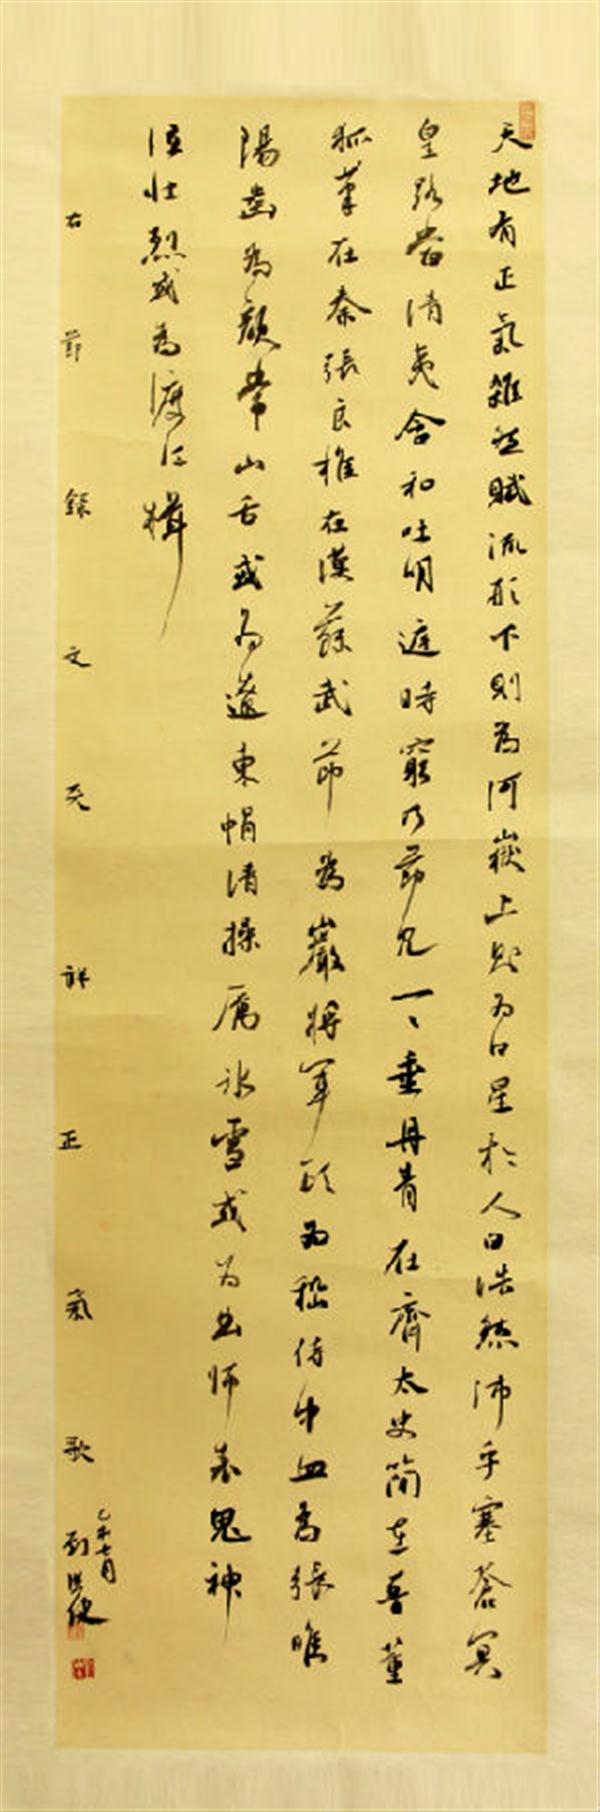 天地有正氣雜然賦流形下則為河嶽上則為日星於人曰浩然沛乎塞蒼冥
皇路當清夷含和吐明庭時窮乃節見一一垂丹青在齊太史簡在晉董
狐筆在秦張良椎在漢蘇武節為嚴將軍頭為嵇侍中血為張睢
陽齒為顏常山舌或為遼東帽清操厲冰雪或為出師表鬼神
泣壯烈或為渡江楫
右節錄文天祥正氣歌
乙未七月